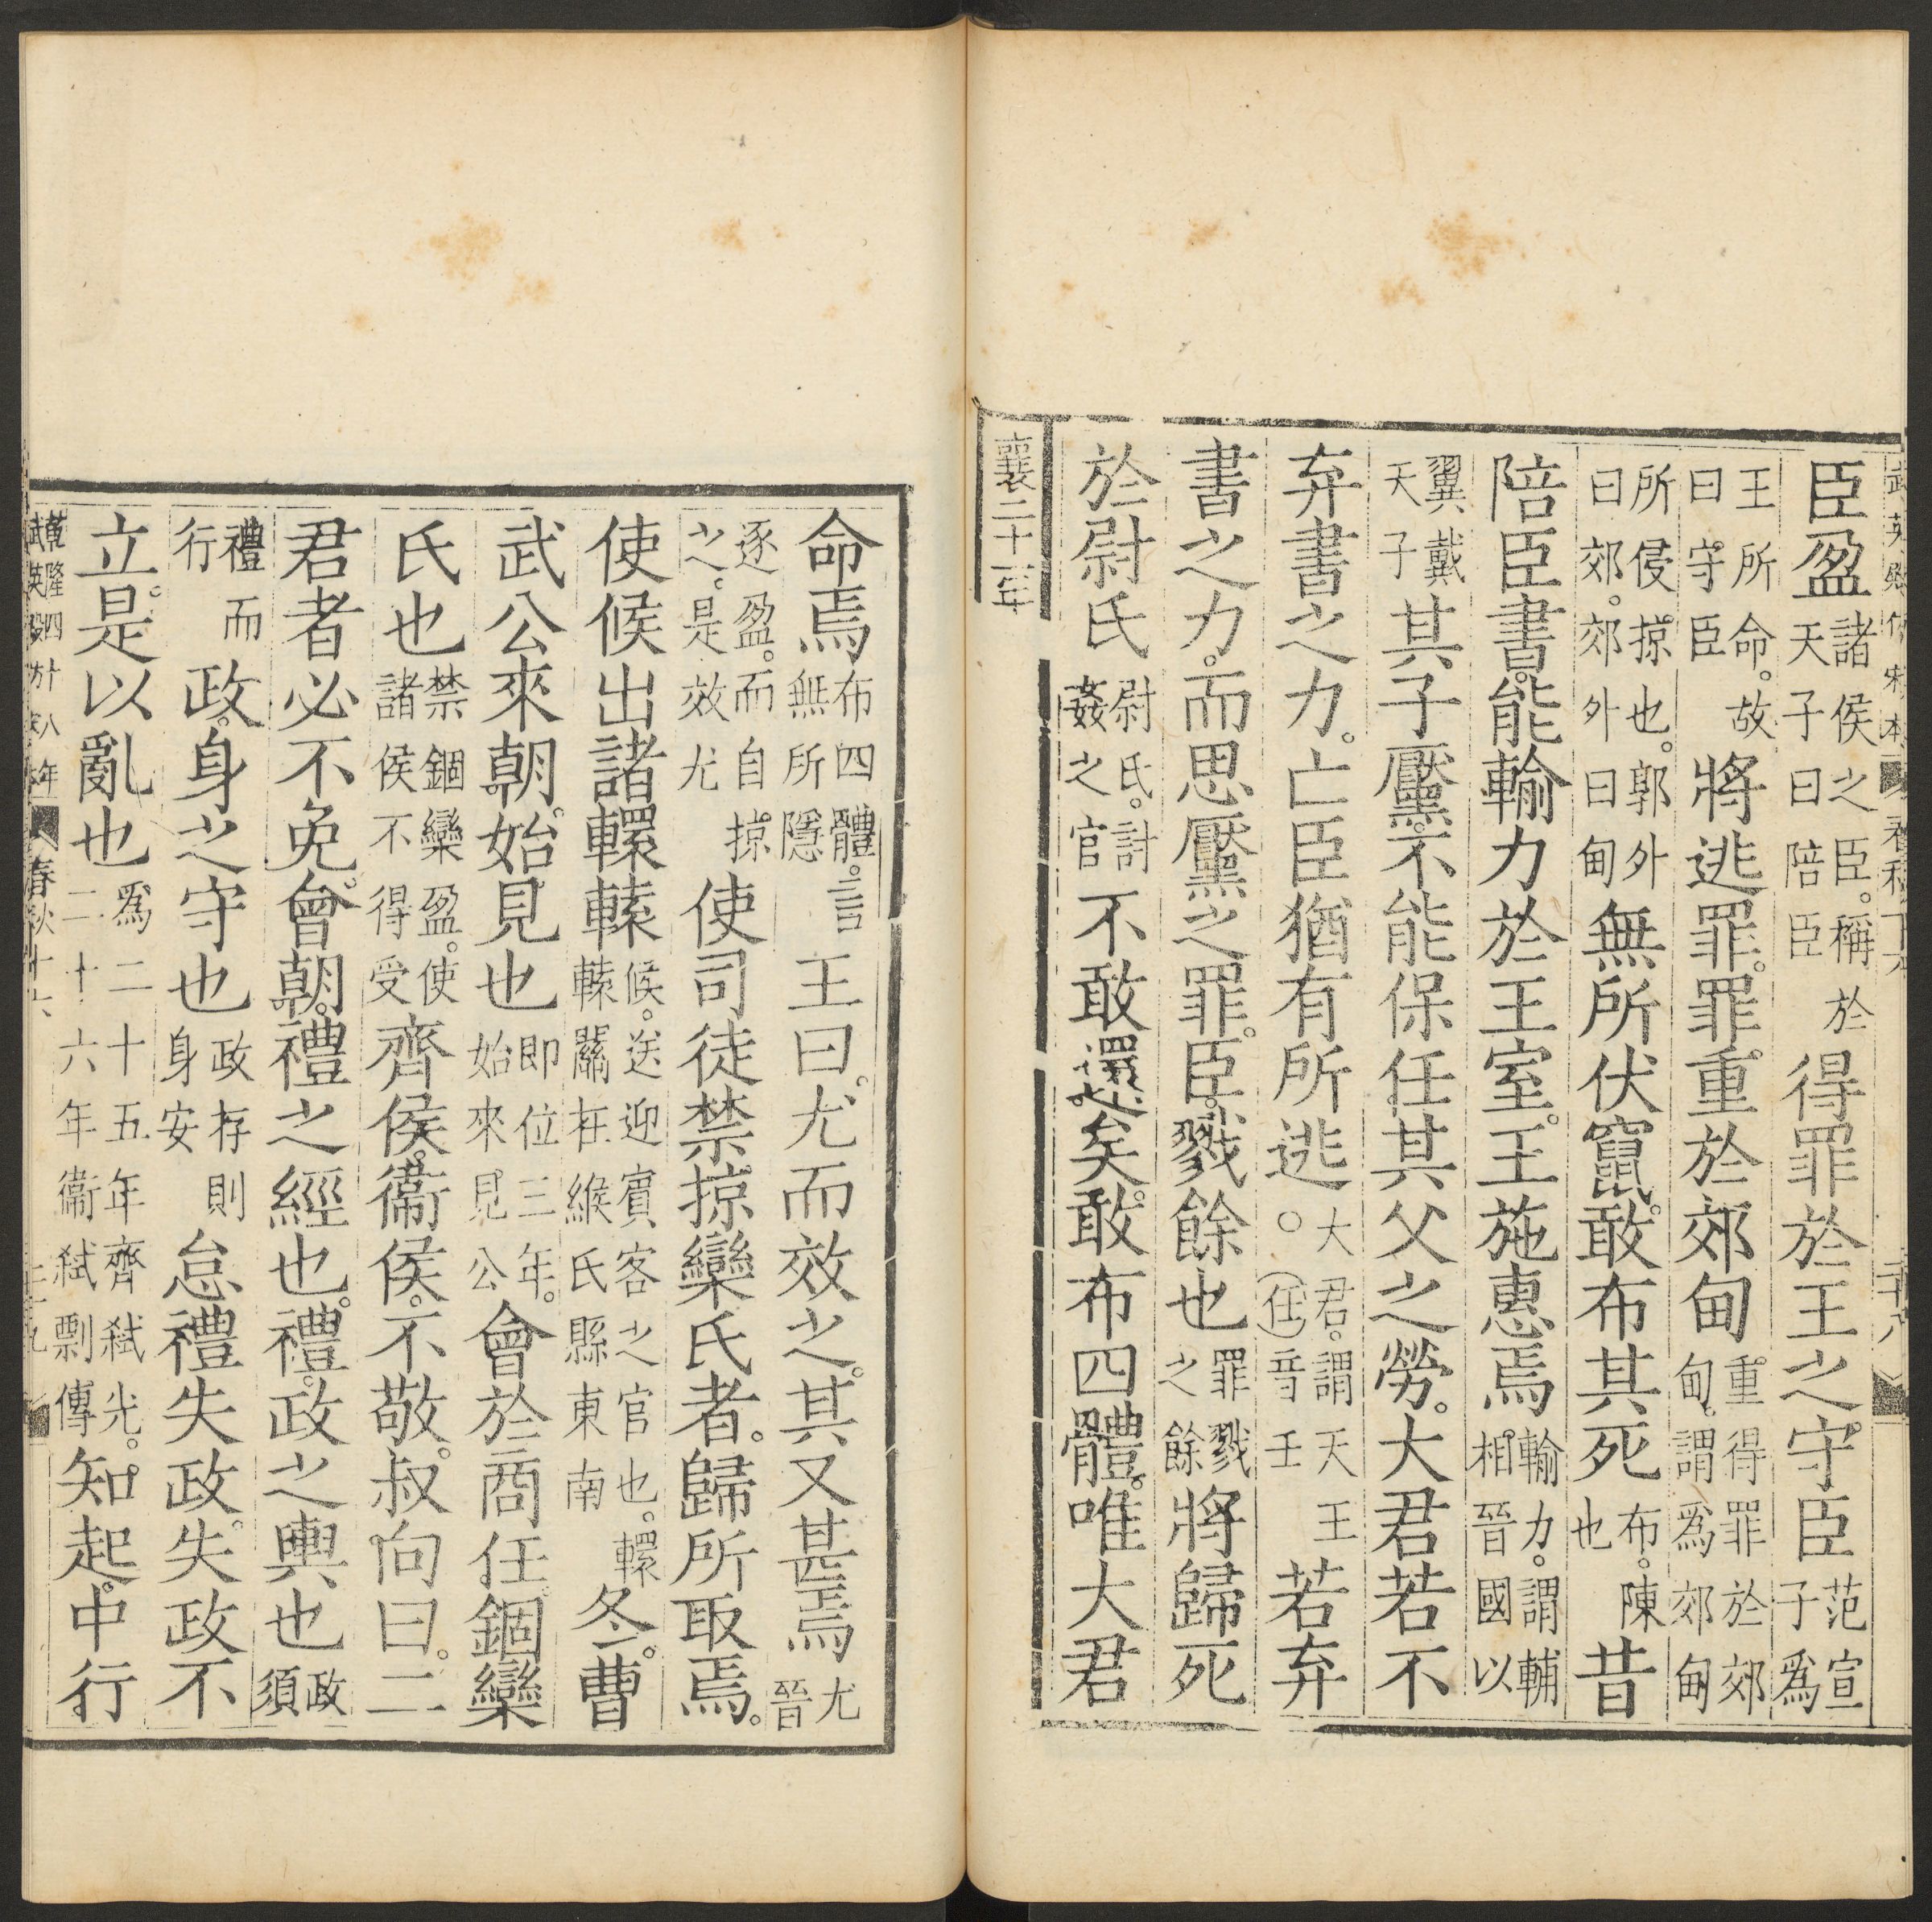 臣盈諸侯之臣。稱於天子曰陪臣得罪於王之守臣范宣子爲
王所命。故曰守臣將逃罪。罪重於郊甸重得罪於郊甸。謂爲郊甸
所侵掠也。郭外曰郊。郊外曰甸無所伏竄。敢布其死布。陳也昔
陪臣書。能輸力於王室。王施惠焉輸力。謂輔相晉國以
翼戴天子其子黶。不能保任其父之勞。大君若不
弃書之力。亡臣猶有所逃大君。謂天王。○(任)音壬若弃
書之力。而思黶之罪。臣。戮餘也罪戮之餘將歸死
於尉氏尉氏。討姦之官不敢還矣。敢布四體。唯大君
襄二十一年
命焉布四體。言無所隱王曰。尤而效之。其又甚焉尤晉
逐盈。而自掠之。是效尤使司徒禁掠欒氏者。歸所取焉。
使候出諸轘轅候。送迎賓客之官也。轘轅關在緱氏縣東南冬。曹
武公來朝。始見也即位三年。始來見公會於商任。錮欒
氏也禁錮欒盈。使諸侯不得受齊侯。衞侯。不敬。叔向曰。二
君者必不免。會朝。禮之經也。禮。政之輿也政須
禮而行政。身之守也政存則身安怠禮失政。失政不
立。是以亂也爲二十五年齊弒光。二十六年衞弒剽傳知起。中行。
乾隆四十八年
武英殿仿宋本
春秋十六